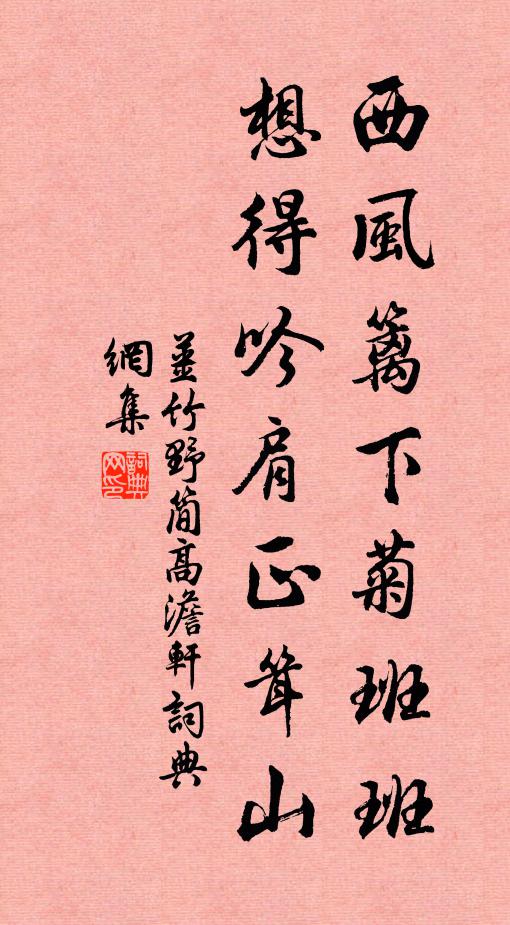 西風篱下菊班班
想得吟肩正耸山
姜竹野简高澹軒詞典
網集
詞典
网印